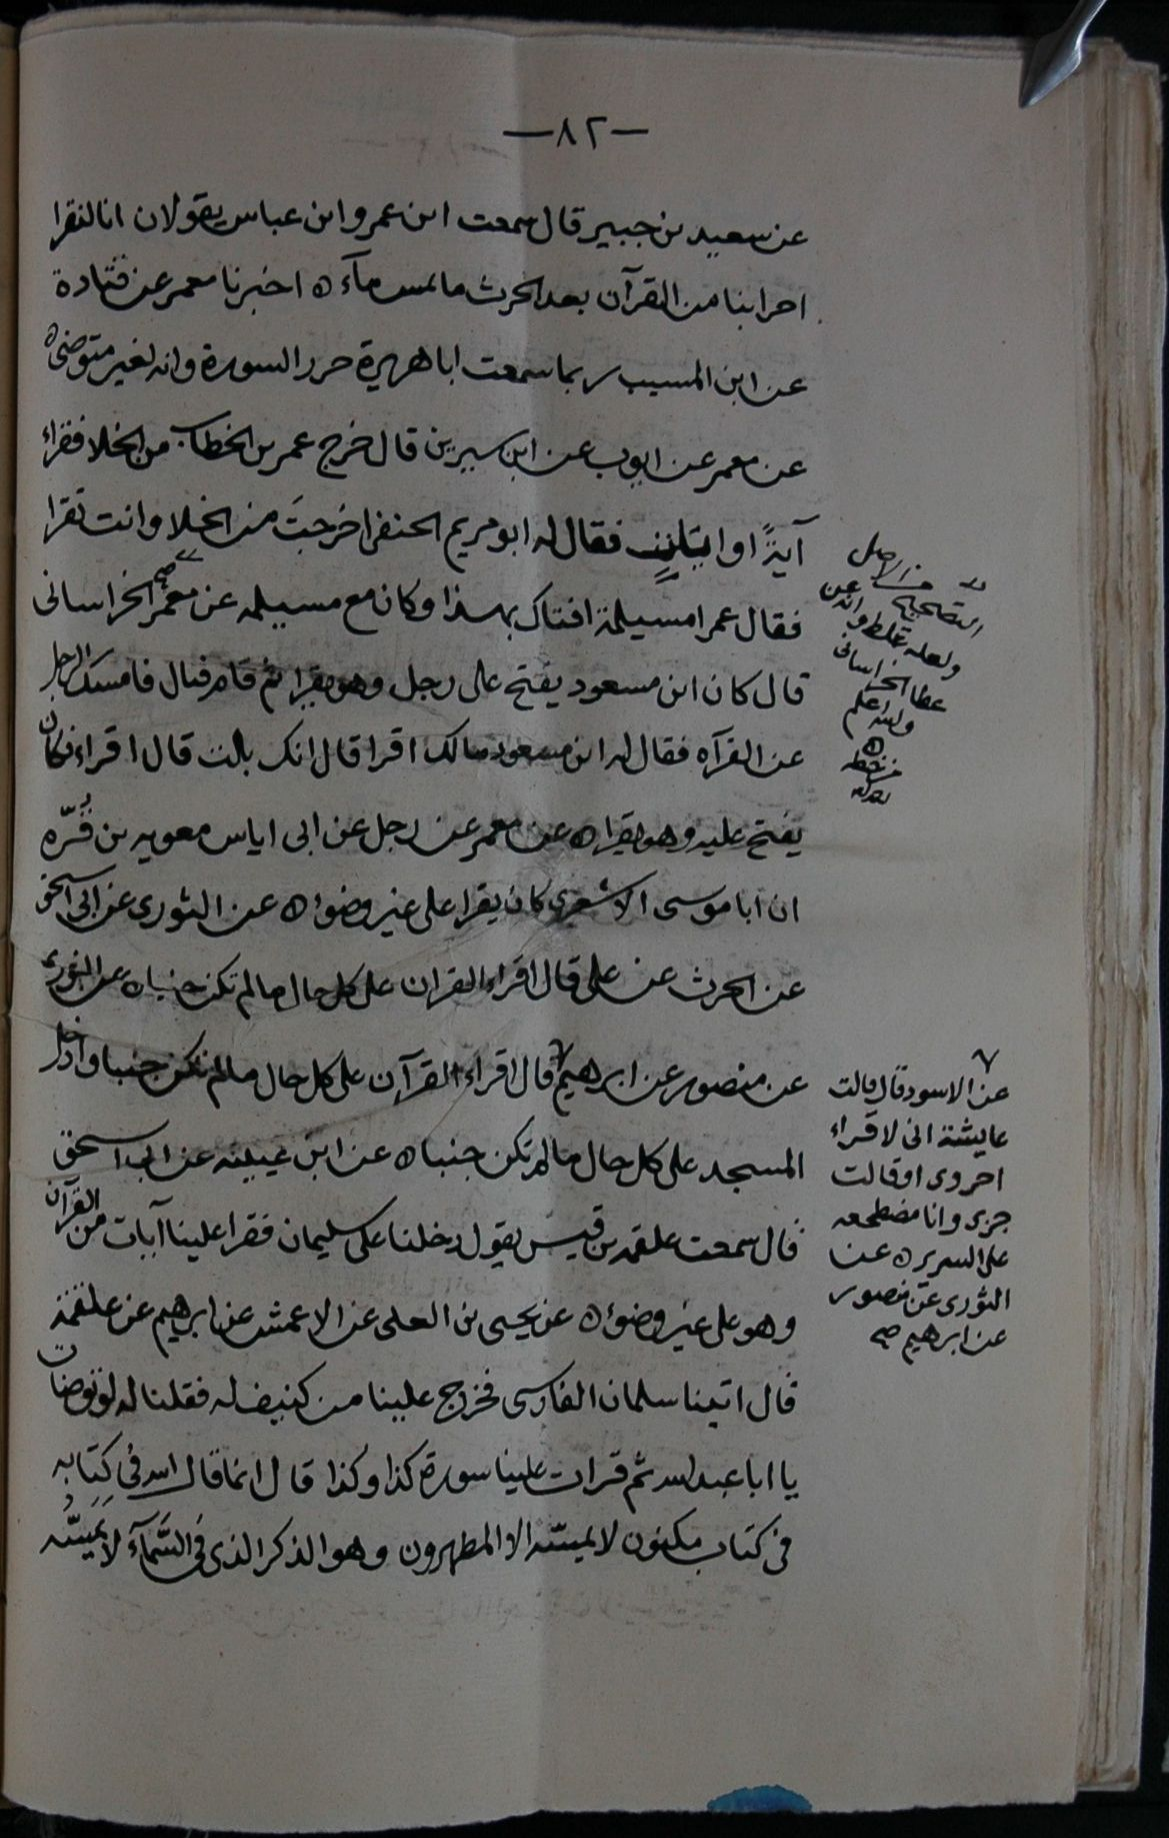 —٨٢—
عن سعيد بن جبير قال سمعت ابن عمر وابن عباس يقولان انا لنقرا
اجزابنا من القرآن بعد الحرث ما نمس مآء ه اخبرنا معمر عن قتادة
عن ابن المسيب ربما سمعت ابا هريرة حرر السورة وانه لغير متوضئ ه
عن معمر عن ايوب عن ابن سيرين قال خرج عمر بن الخطاب من الخلا فقراء
آيةً او ايتان فقال له ابو مريم الحنفى اخرجتَ من الخلا وانت تقرا
فقال عمر امسيلمة افتاك بهذا وكان مع مسيلمه عن معمر صح الخراسانى
قال كان ابن مسعود يفتح على رجل وهو يقرا ثم قام فبال فامسك الرجل
عن القرآه فقال له ابن مسعود مالك اقرا قال انك بلت قال اقراء فكان
يفتح عليه وهو يقرا ه عن معمر عن رجل عن ابى اياس معويه بن قُرّه
ان ابا موسى الاشعرى كان يقرا على غير وضوء ه عن الثورى عن ابى اسحق
عن الحرث عن على قال اقراء القران على كل حال ما لم تكن جنبا ه عن الثورى
عن منصور عن ابرهيم ٧ قال اقراء القرآن على كل حال ما لم تكن جنبا وادخل
المسجد على كل حال ما لم تكن جنبا ه عن ابن عيينه عن ابى اسحق
قال سمعت علقمه بن قيس يقول دخلنا على سليمان فقرا علينا آيات من القرآن
وهو على غير وضوء ه عن يحيى بن العلى عن الاعمش عن ابرهيم عن علقمة
قال اتينا سلمان الفارسى فخرج علينا من كنيف له فقلنا له لو توضات
يا ابا عبد الله ثم قرات علينا سورة كذا وكذا قال انما قال الله فى كِتَابه
فى كتاب مكنون لا يمسّه الا المطهرون وهو الذكر الذى فى السَّمآء لا يمسّه
التصحيح من الاصل
ولعله غلط وانه عن
عطا الخراسانى
والله اعلم
ه
من خطه
عن الاسود قال قالت
عايشة انى لاقراء
احزوى او قالت
جزى وانا مضطجعه
على السرير ه عن
الثورى عن منصور
عن ابرهيم صح